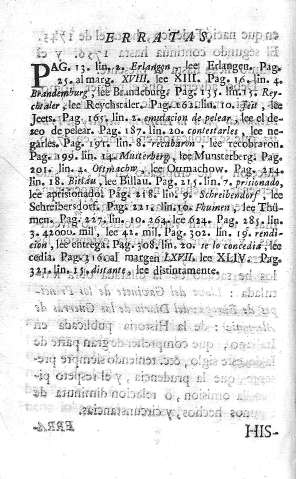 ERRATAS.
PAG. 13. lin. 2. Erlangon, lee Erlangen. Pag.
25. al marg. XVIII. lee XIII. Pag. 16. lin. 4.
Brandemburg, lee Brandeburg. Pag. 135. lin. 15. Rey-
chtaler, lee Reychstaler. Pag. 162. lin. 10. lee
Jeets. Pag. 165. lin. 2. emulacion de pelear, lee el de-
zeo de pelear. Pag. 187. lin. 20. contestarles, lee ne-
garles. Pag. 191. lin. 8. recabaron, lee recobraron.
Pag. 199. lin. 14. Musterberg, lee Munsterberg. Pag.
201. lin. 2. Ottmachw, lee Ottmachow. Pag. 214.
lin. 18. Bitlau, lee Billau. Pag. 215. lin. 7. prisionado,
lee aprisionado. Pag. 218. lin. 9. Schreibendorf, lee
Schreibersdorf. Pag. 221. lin. 10. Thuinen, lee Thu-
men. Pag. 227. lin. 10. 264. lee 624. Pag. 285. lin.
3. 42000. mil, lee 42. mil. Pag. 302. lin. 19. rendi-
cion, lee entrega. Pag. 308. lin. 20. se lo concedia, lee
cedia. Pag. 316. al margen LXVII. lee XLIV. Pag.
321. lin. 15. distante, lee distintamente.
HIS-